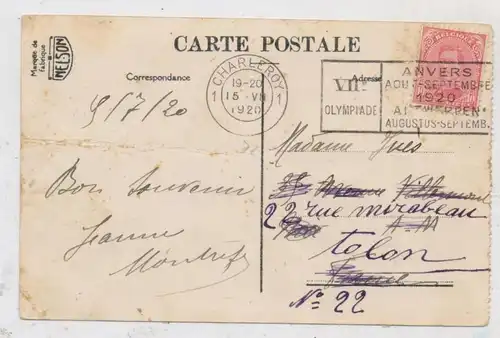 CARTE POSTALE
Marque de fabrique
NELSON
Correspondance
Adresse
CHARLEROY
1 1
19-20
15 VII
1920
VIIe
OLYMPIADE
ANVERS
AOUT-SEPTEMBRE
1920
ANTWERPEN
AUGUSTUS-SEPTEMB.
9/7/20
Bon Souvenir
Jeanne
Madame Yves
22 rue mirabeau
tolon
No 22